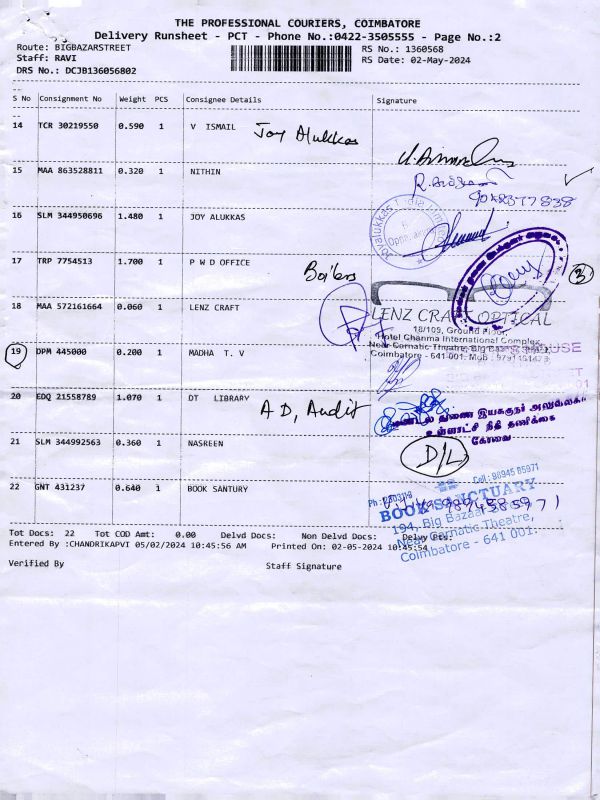 THE PROFESSIONAL COURIERS, COIMBATORE
Delivery Runsheet - PCT - Phone No.:0422-3505555 - Page No.:2
Route: BIGBAZARSTREET
RS No.: 1360568
Staff: RAVI
RS Date: 02-May-2024
DRS No.: DCJB136056802
S No Consignment No Weight PCS Consignee Details Signature
14 TCR 30219550 0.590 1 V ISMAIL Joy Alukkas
15 MAA 863528811 0.320 1 NITHIN
16 SLM 344950696 1.480 1 JOY ALUKKAS
17 TRP 7754513 1.700 1 P W D OFFICE Boilers
3
18 MAA 572161664 0.060 1 LENZ CRAFT
LENZ CRAFT OPTICAL
18/109, Ground Floor,
Hotel Chanma International Complex,
Near Carnatic Theatre, Big
Coimbatore - 641 001. Mob :
19 DPM 445000 0.200 1 MADHA T. V
20 EDQ 21558789 1.070 1 DT LIBRARY AD, Audit
மண்டல துணை இயக்குநர் அலுவலகம்
உள்ளாட்சி நிதி தணிக்கை
கோவை
21 SLM 344992563 0.360 1 NASREEN D/L
22 GNT 431237 0.640 1 BOOK SANTURY
Cell: 98945 85971
BOOK SANCTUARY
194, Big Bazaar Street,
Near Carnatic Theatre,
Coimbatore - 641 001.
Tot Docs: 22 Tot COD Amt: 0.00 Delvd Docs: Non Delvd Docs: Delvy Pts:
Entered By :CHANDRIKAPVI 05/02/2024 10:45:56 AM Printed On: 02-05-2024 10:45:54
Verified By Staff Signature